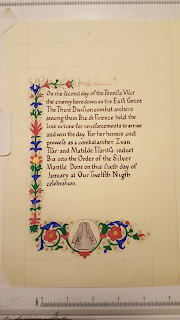 On the second day of the Pennsic War
the enemy bore down on the East forces
The Third Division combat archers
among them Bia di Firenze held the
line in time for reinforcements to arrive
and win the day. For her heroics and
prowess as a combat archer I Ivan
Tsar and Matilde Tsaritsa induct
Bia into the Order of the Silver
Mantle. Done on this sixth day of
January at Our Twelfth Nigth
celebration.